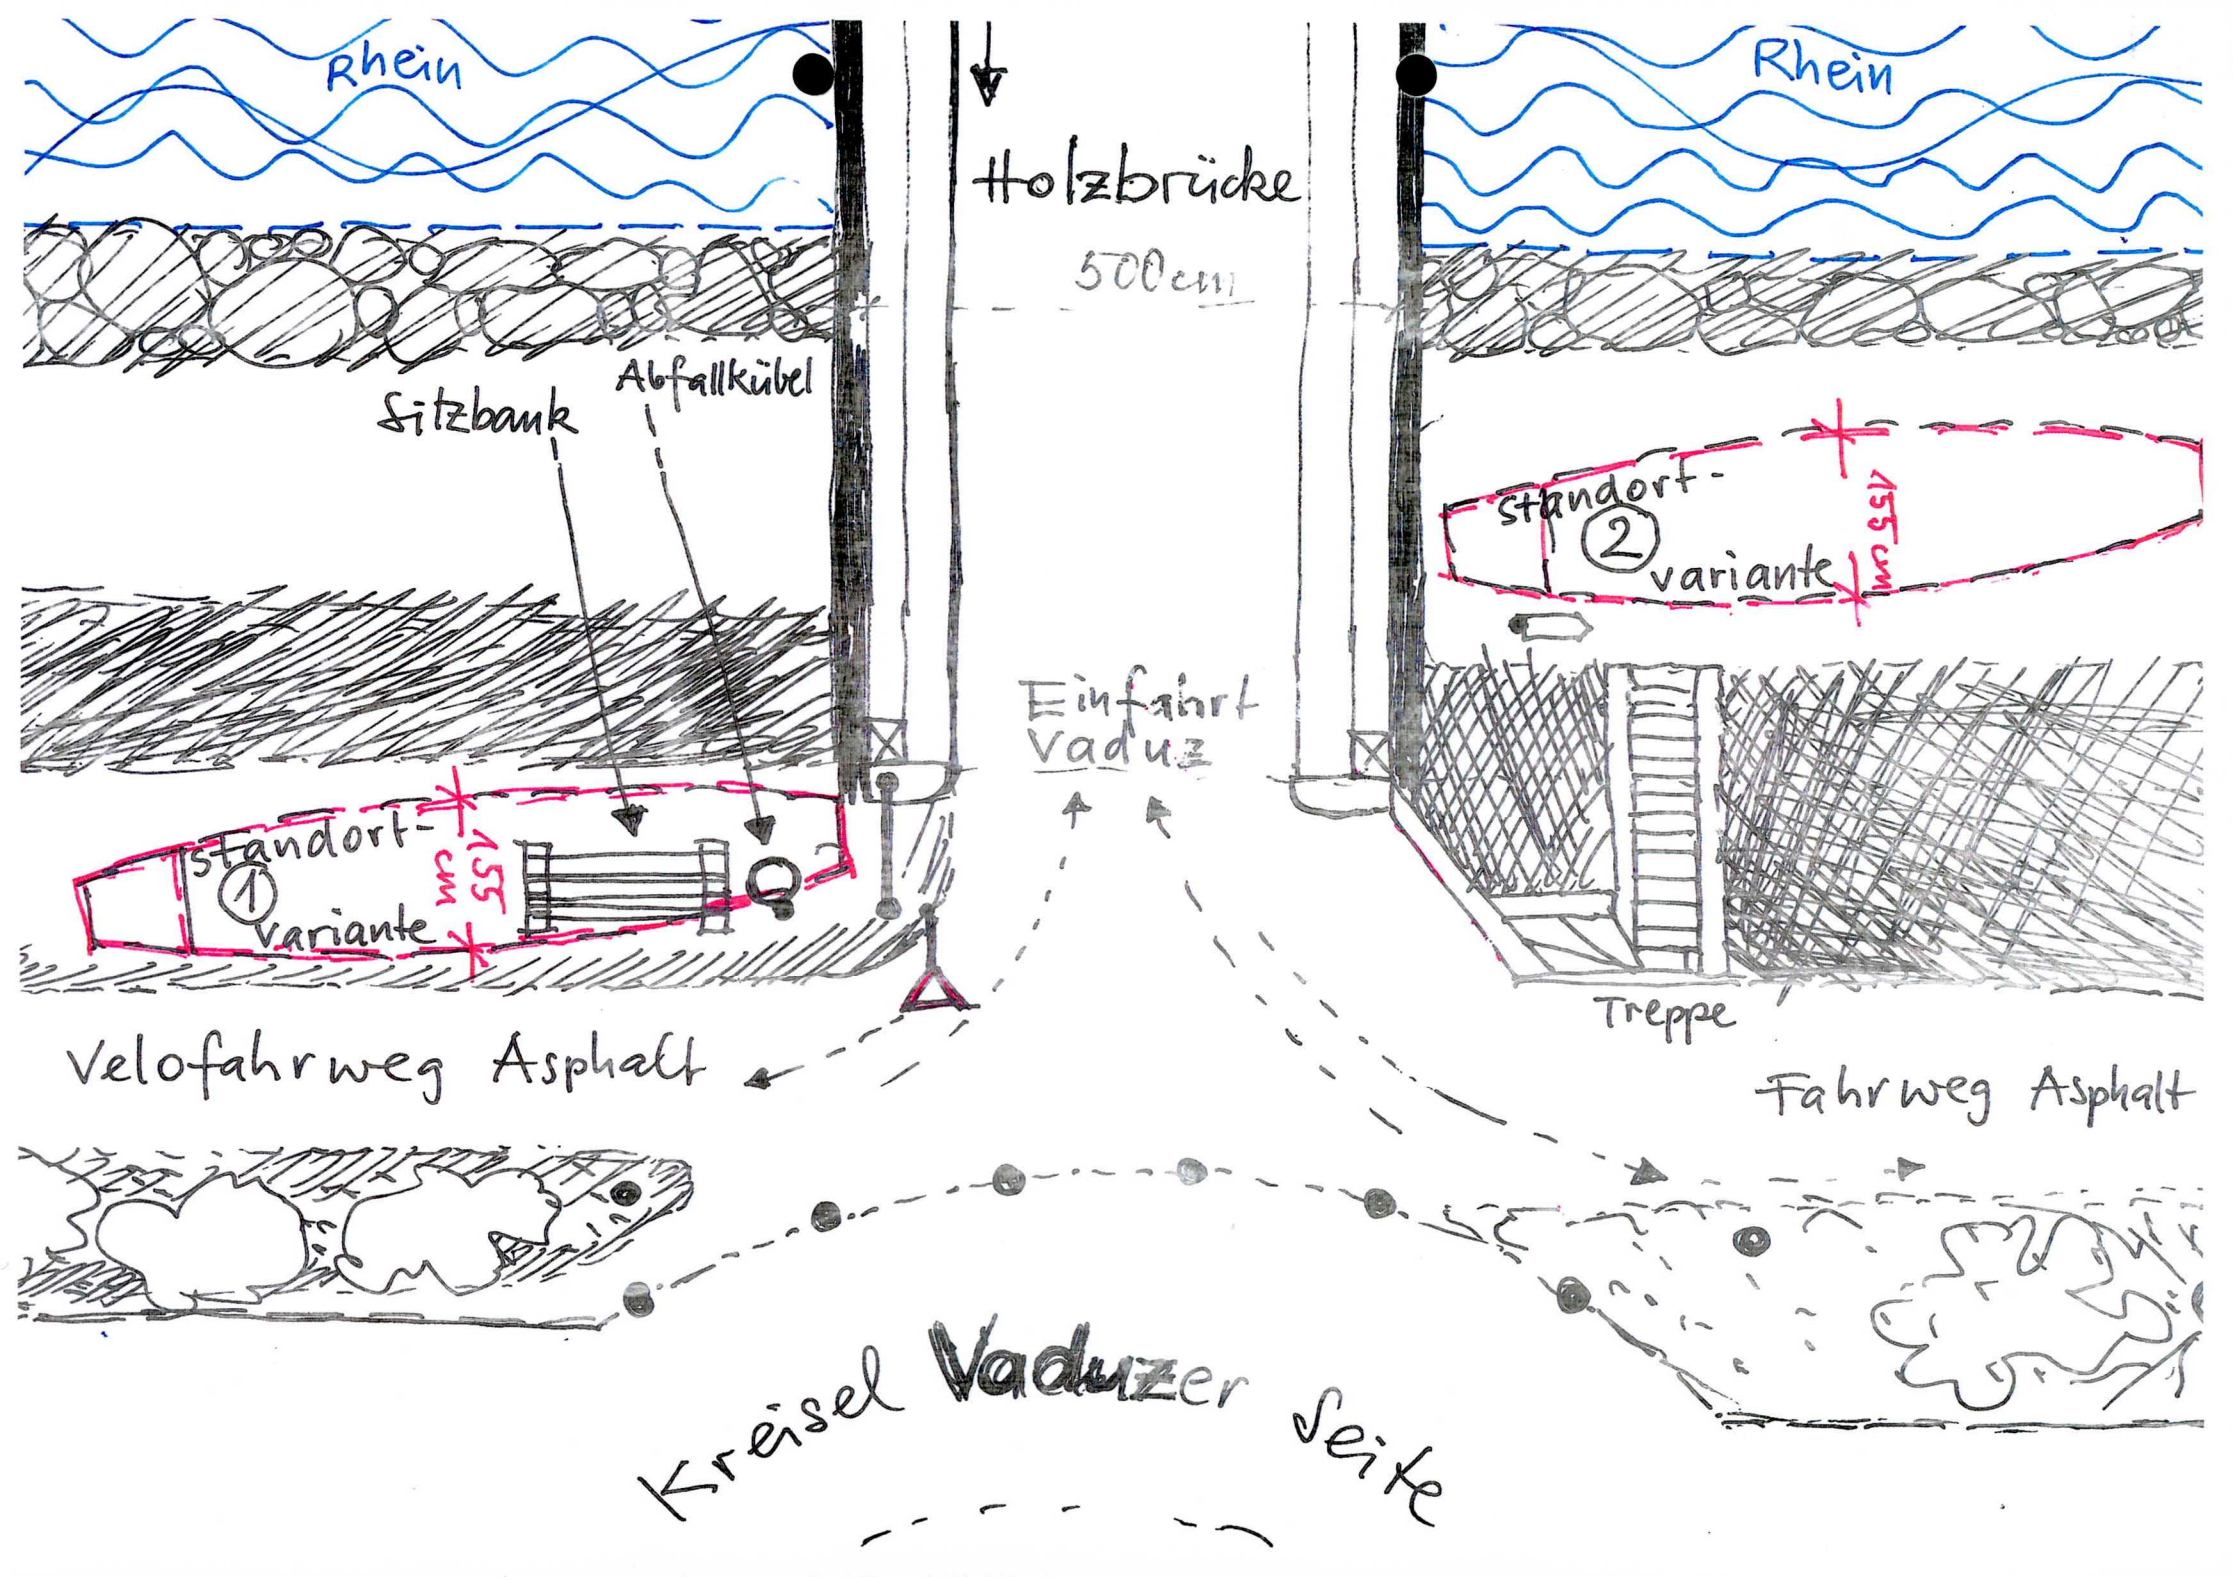 Rhein
Rhein
Holzbrücke
500cm
Abfallkübel
Sitzbank
standort-
2
variante
155 cm
Einfahrt
Vaduz
standort-
1
variante
155
cm
Treppe
Velofahrweg Asphalt
Fahrweg Asphalt
Kreisel Vaduzer Seite